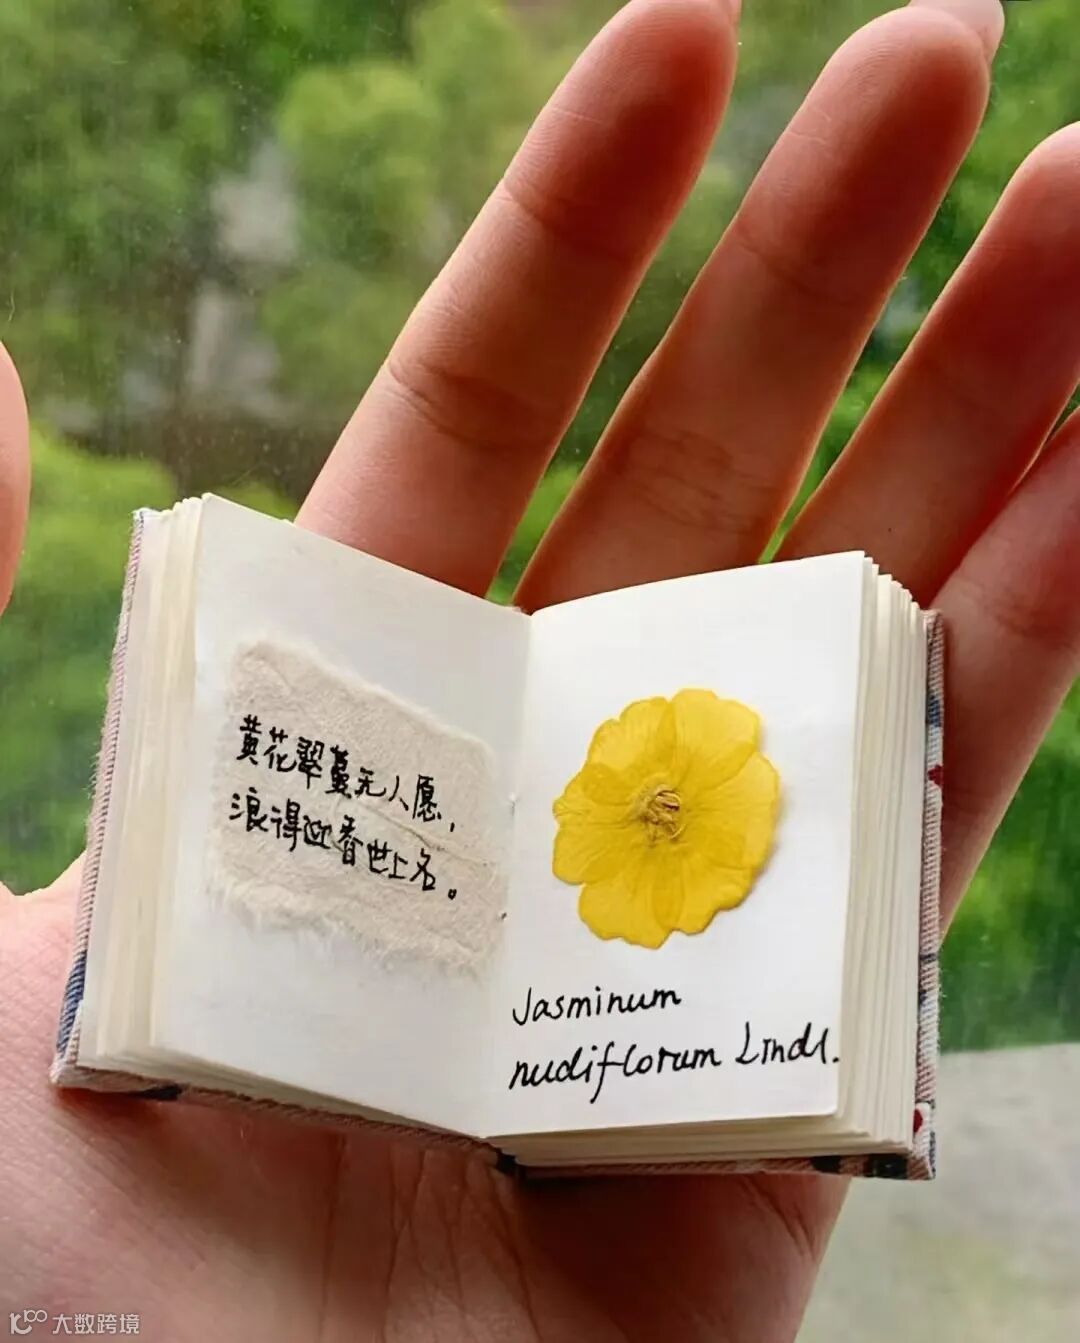 黄花翠蔓无人愿，
浪得迎春世上名。
Jasminum
nudiflorum Lindl.
大数跨境